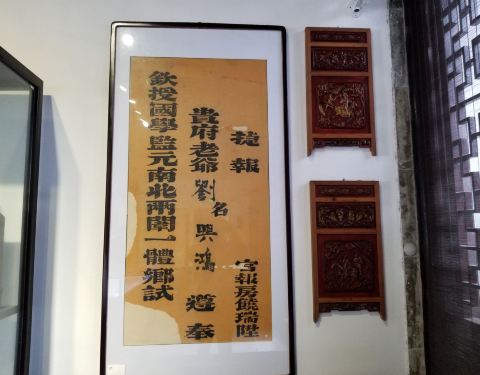 捷報
官報房饒瑞陞
貴府老爺劉名興鴻遵奉
欽授國學監元南北兩闈一體鄉試